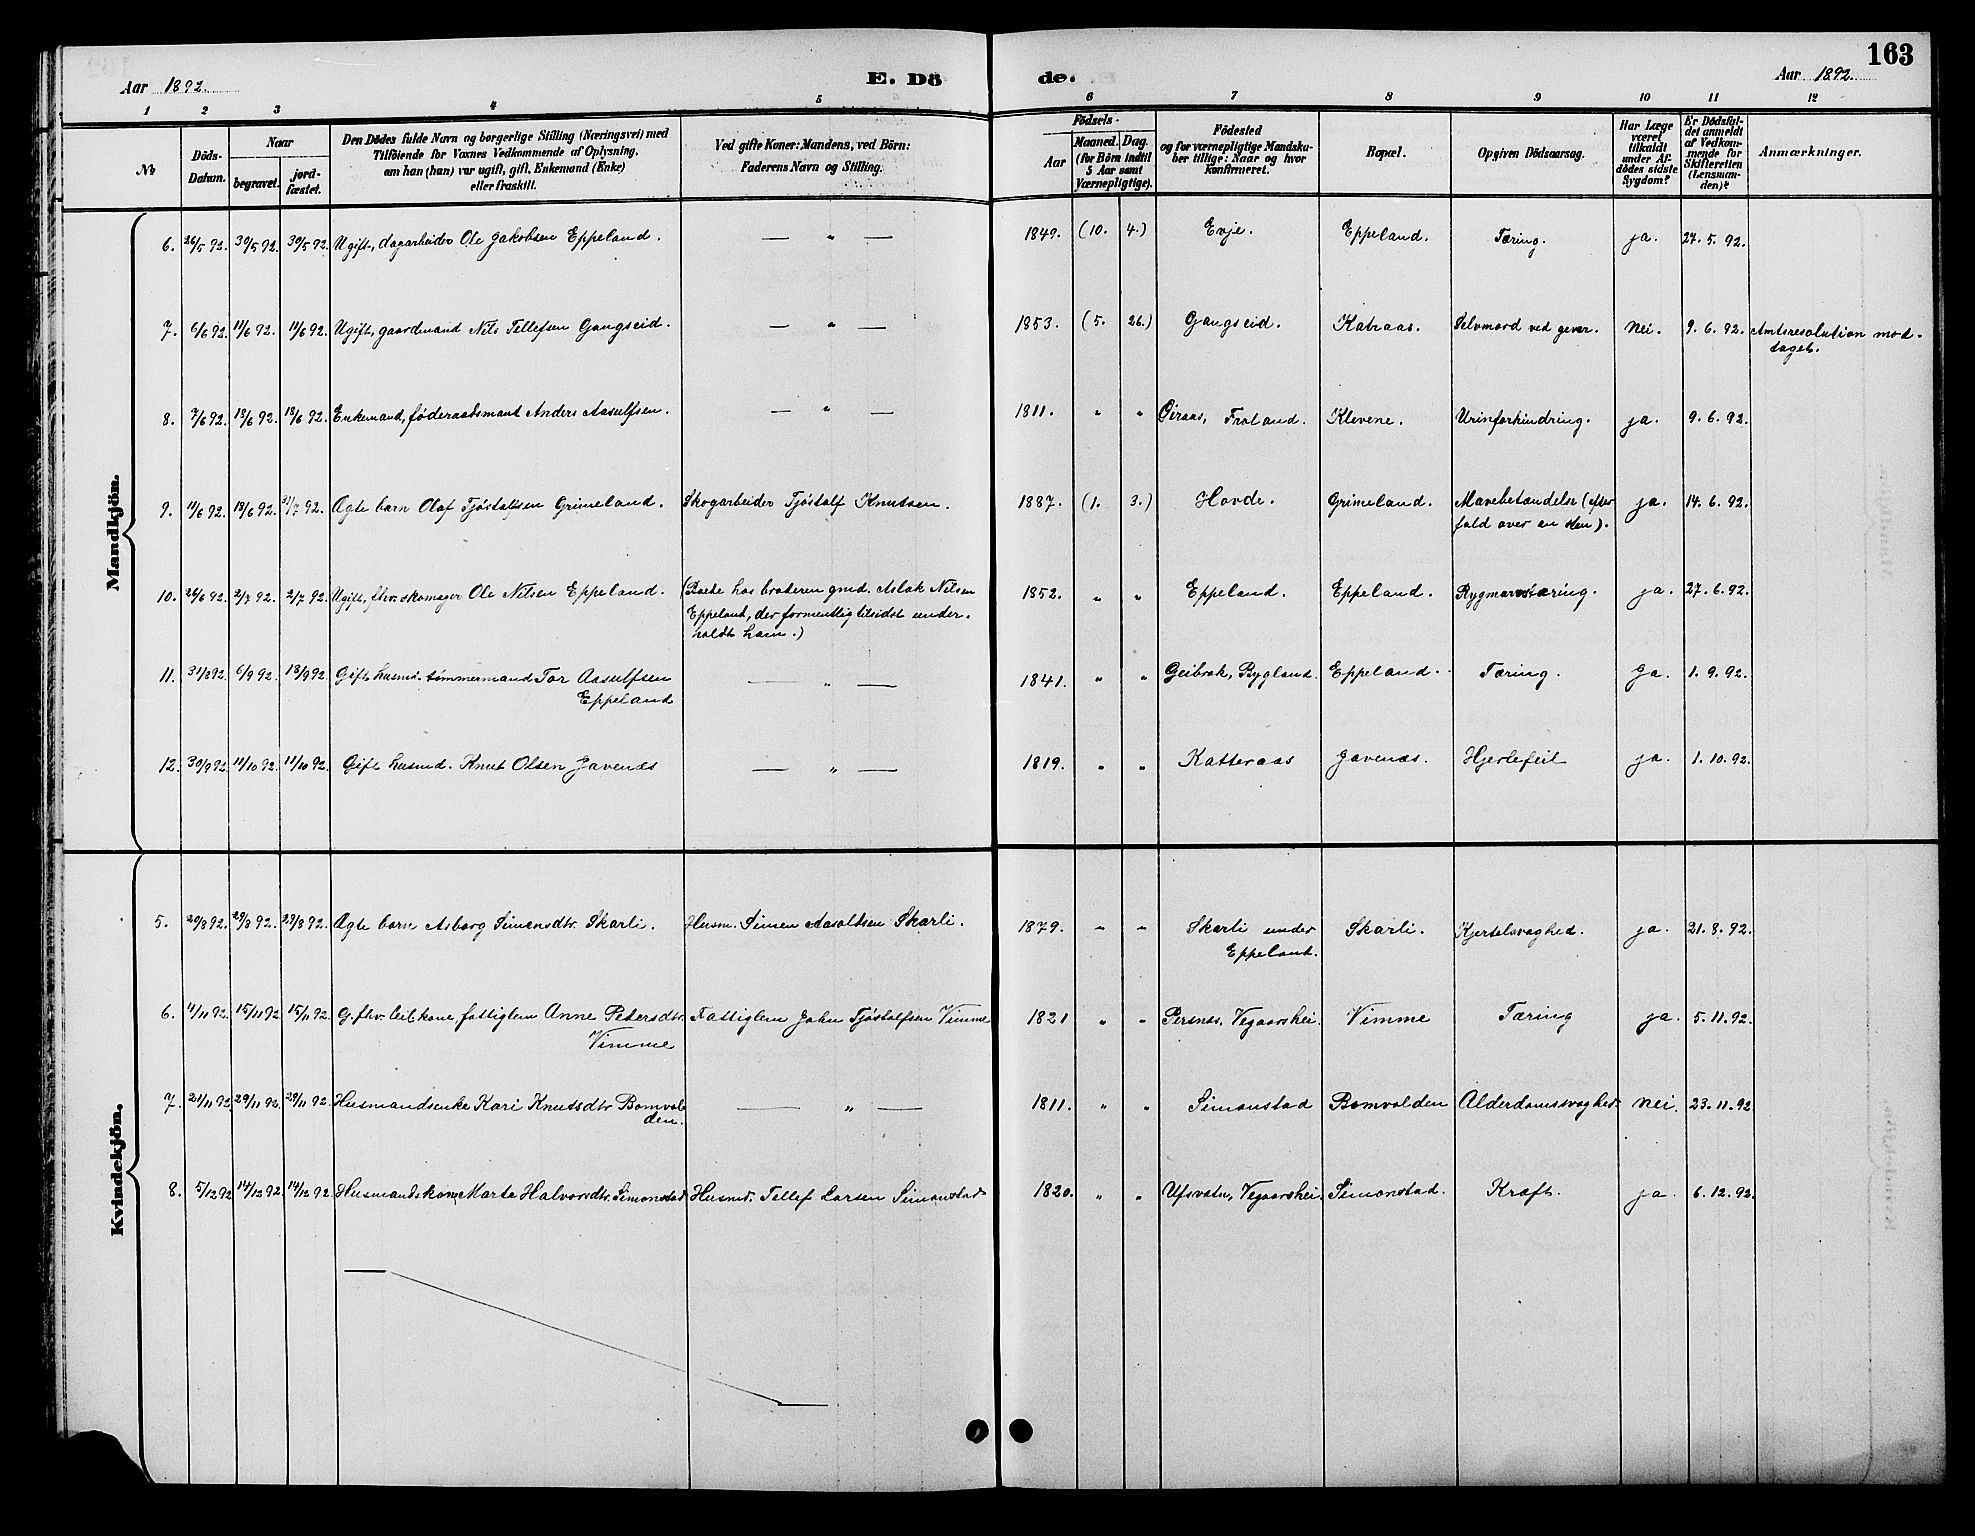 163
Aar 1892.
E. Dö de.
Aar 1892.
1 2 3 4 5 6 7 8 9 10 11 12
No
Döds-Datum.
Naar
begravet.
jord-fæstet.
Den Dödes fulde Navn og borgerlige Stilling (Næringsvei) med
Tilföiende for Voxnes Vedkommende af Oplysning,
om han (hun) var ugift, gift, Enkemand (Enke)
eller fraskilt.
Ved gifte Koner: Mandens, ved Börn:
Faderens Navn og Stilling.
Födsels-
Aar
Maaned. Dag.
(for Börn indtil
5 Aar samt
Værnepligtige).
Födested
og for værnepligtige Mandska-
ber tillige: Naar og hvor
konfirmeret.
Bopæl.
Opgiven Dödsaarsag.
Har Læge
været
tilkaldt
under Af-
dödes sidste
Sygdom?
Er Dödsfal-
det anmeldt
af Vedkom-
mende for
Skifteretten
(Lensman-
den)?
Anmærkninger.
Mandkjön.
6. 26/5 92. 30/5 92. 30/5 92. Ugift, dagarbeider Ole Jakobsen Eppeland. — " — 1849. (10. 4.) Evje. Eppeland. Tæring. ja. 27. 5. 92.
7. 6/6 92. 11/6 92. 11/6 92. Ugift, gaardmand Nils Tellefsen Gangseid. — " — 1853. (5. 26.) Gangseid. Katraas. Selvmord ved gever. Nei. 9. 6. 92. Amtsresolution mod-
taget.
8. 7/6 92. 18/6 92. 18/6 92. Enkemand, føderaadsmand Anders Aasulfsen. — " — 1811. " " Øiraas, Froland. Klevene. Urinforhindring. ja. 9. 6. 92.
9. 11/6 92. 18/6 92. 31/7 92. Ægte barn Olaf Tjøstolfsen Grimeland. Skogarbeider Tjøstolf Knutsen. 1887. (1. 3.) Hovde. Grimeland. Mavebetændelse (efter
fald over en sten). ja. 14. 6. 92.
10. 26/6 92. 2/7 92. 2/7 92. Ugift, fhv. skomager Ole Nilsen Eppeland. (Boede hos broderen gmd. Aslak Nilsen
Eppeland, der formentlig tilsidst under-
holdt ham.) 1852. " " Eppeland. Eppeland. Rygmarvstæring. ja. 27. 6. 92.
11. 31/8 92. 6/9 92. 18/9 92. Gift husmd. tømmermand Tor Aasulfsen
Eppeland — " — 1841. " " Geibrok, Bygland. Eppeland. Tæring. Ja. 1. 9. 92.
12. 30/9 92. 11/10 92. 11/10 92. Gift husmd. Knut Olsen Javenæs — " — 1819. " " Katteraas Javenæs. Hjertefeil ja. 1. 10. 92.
Kvindekjön.
5. 20/8 92. 29/8 92. 29/8 92. Ægte barn Asborg Simonsdtr. Skarli. Husm. Simen Aasoltsen Skarli. 1879. " " Skarli under
Eppeland. Skarli. Kjertelsvaghed. ja. 21. 8. 92.
6. 4/11 92. 15/11 92 15/11 92. G. fhv. leil. kone fattiglem Anne Petersdtr.
Vimme Fattiglem John Tjøstolfsen Vimme 1821 " " Persnes, Vegaarshei. Vimme Tæring ja. 5. 11. 92.
7. 21/11 92. 29/11 92. 29/11 92. Husmandsenke Kari Knutsdtr Bomvol-
den. — " — 1811. " " Simonstad Bomvolden Alderdomssvaghed. Nei. 23. 11. 92
8. 5/12 92 14/12 92. 14/12 92. Husmandskone Marte Halvorsdtr. Simonstad Husmd. Tellef Larsen Simonstad 1820. " " Ufsvatn, Vegaarshei. Simonstad. Kræft. ja. 6. 12. 92.